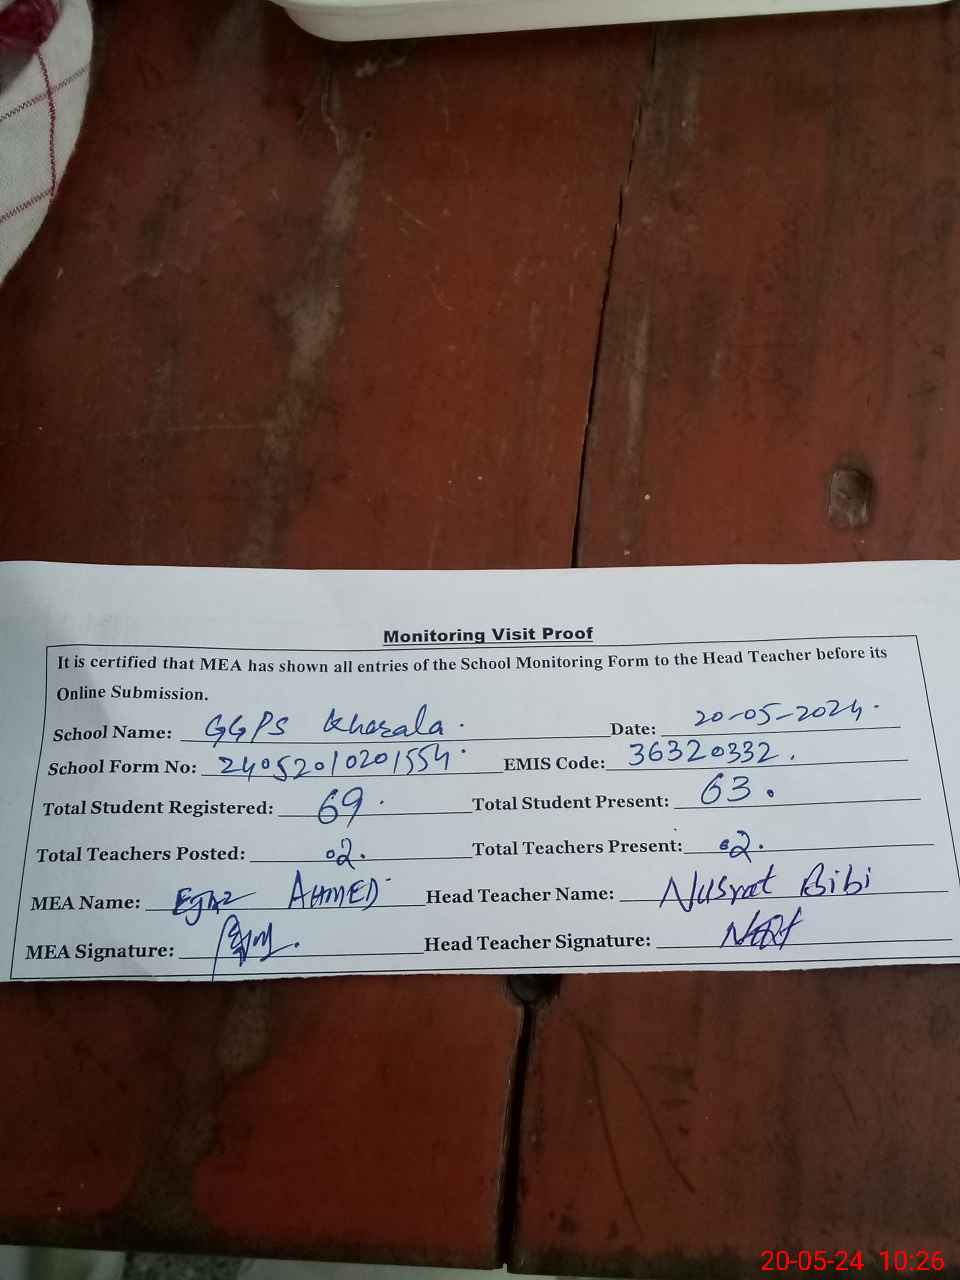 Monitoring Visit Proof
It is certified that MEA has shown all entries of the School Monitoring Form to the Head Teacher before its
Online Submission.
School Name: GGPS Kharala. Date: 20-05-2024.
School Form No: 24052010201554. EMIS Code: 36320332.
Total Student Registered: 69. Total Student Present: 63.
Total Teachers Posted: 02. Total Teachers Present: 02.
MEA Name: AHMED Head Teacher Name: Nusrat Bibi
MEA Signature: Head Teacher Signature:
20-05-24 10:26